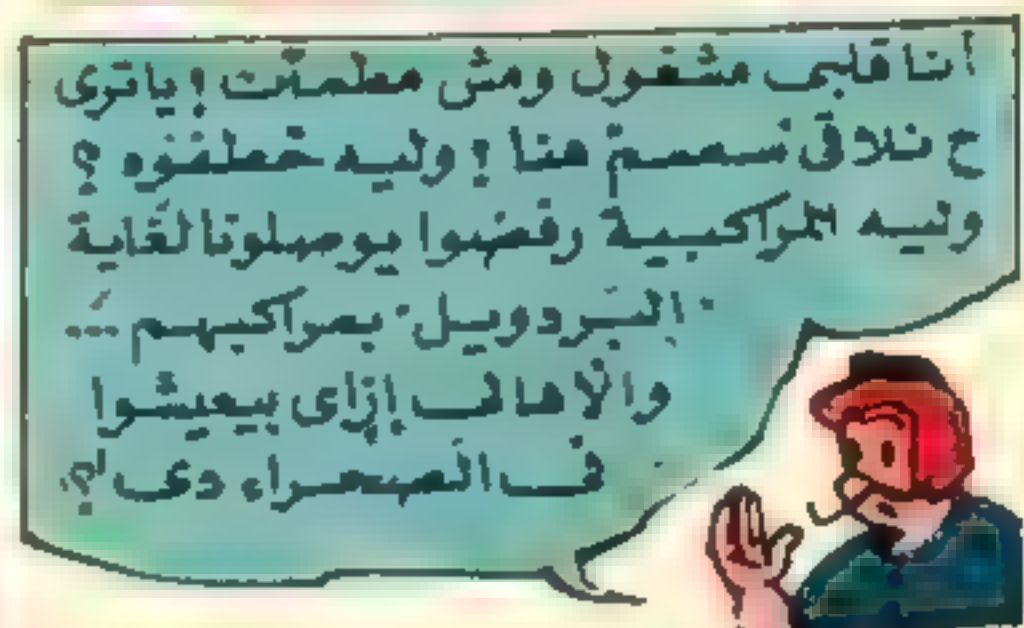 أنا قلبى مشغول ومش مطمئن ! ياترى
ح نلاقى سمسم هنا ! وليه خطفوه ؟
وليه المراكبية رفضوا يوصلونا لغاية
البردويل بمراكبهم ...
والأهالى إزاى بيعيشوا
فى الصحراء دى ؟!